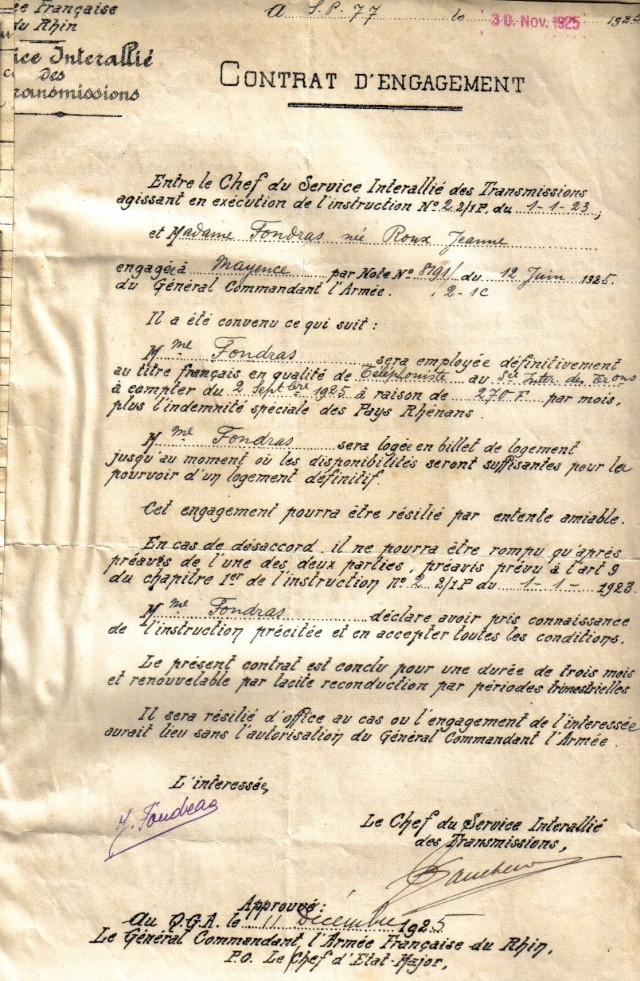 ée Française
du Rhin
ice Interallié
des
ransmissions
A S.P. 77 le 30 Nov. 1925 192
CONTRAT D'ENGAGEMENT
Entre le Chef du Service Interallié des Transmissions
agissant en exécution de l'instruction N° 2 2/1P. du 1-1-23,
et Madame Fondras née Roux Jeanne
engagée à Mayence par Note N° 8191/ du 12 Juin 1925.
du Général Commandant l'Armée. 2-1c
Il a été convenu ce qui suit :
Mme Fondras sera employée définitivement
au titre français en qualité de Téléphoniste au Sce Inter. des Trons
à compter du 2 Septbre 1925 à raison de 270 F par mois,
plus l'indemnité spéciale des Pays Rhénans.
Mme Fondras sera logée en billet de logement
jusqu'au moment où les disponibilités seront suffisantes pour la
pourvoir d'un logement définitif.
Cet engagement pourra être résilié par entente amiable.
En cas de désaccord, il ne pourra être rompu qu'après
préavis de l'une des deux parties, préavis prévu à l'art 9
du chapitre 1er de l'instruction n° 2 2/1P du 1-1-1923.
Mme Fondras déclare avoir pris connaissance
de l'instruction précitée et en accepter toutes les conditions.
Le présent contrat est conclu pour une durée de trois mois
et renouvelable par tacite reconduction par périodes trimestrielles
Il sera résilié d'office au cas ou l'engagement de l'interessée
aurait lieu sans l'autorisation du Général Commandant l'Armée.
L'interessée,
J. Fondras
Le Chef du Service Interallié
des Transmissions,
Approuvé :
Au Q.G.A. le 11 Décembre 1925
Le Général Commandant, l'Armée Française du Rhin,
P.O. Le Chef d'Etat-Major,